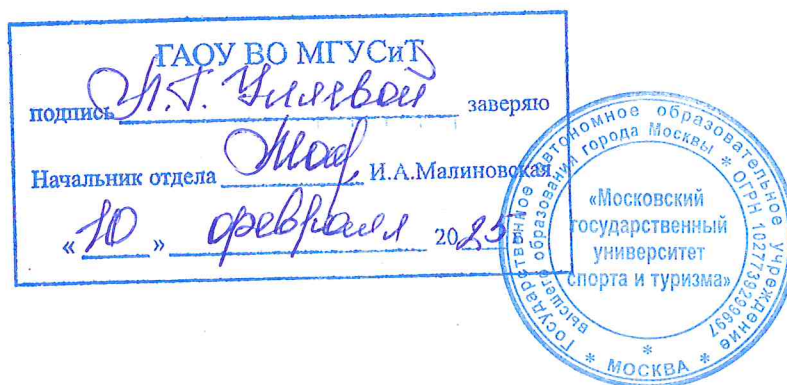 ГАОУ ВО МГУСиТ
подпись Л.Г. Уляевой заверяю
Начальник отдела И.А.Малиновская
« 10 » февраля 2025
Государственное автономное образовательное учреждение
высшего образования города Москвы * ОГРН 1027739299697
«Московский
государственный
университет
спорта и туризма»
*
* МОСКВА *